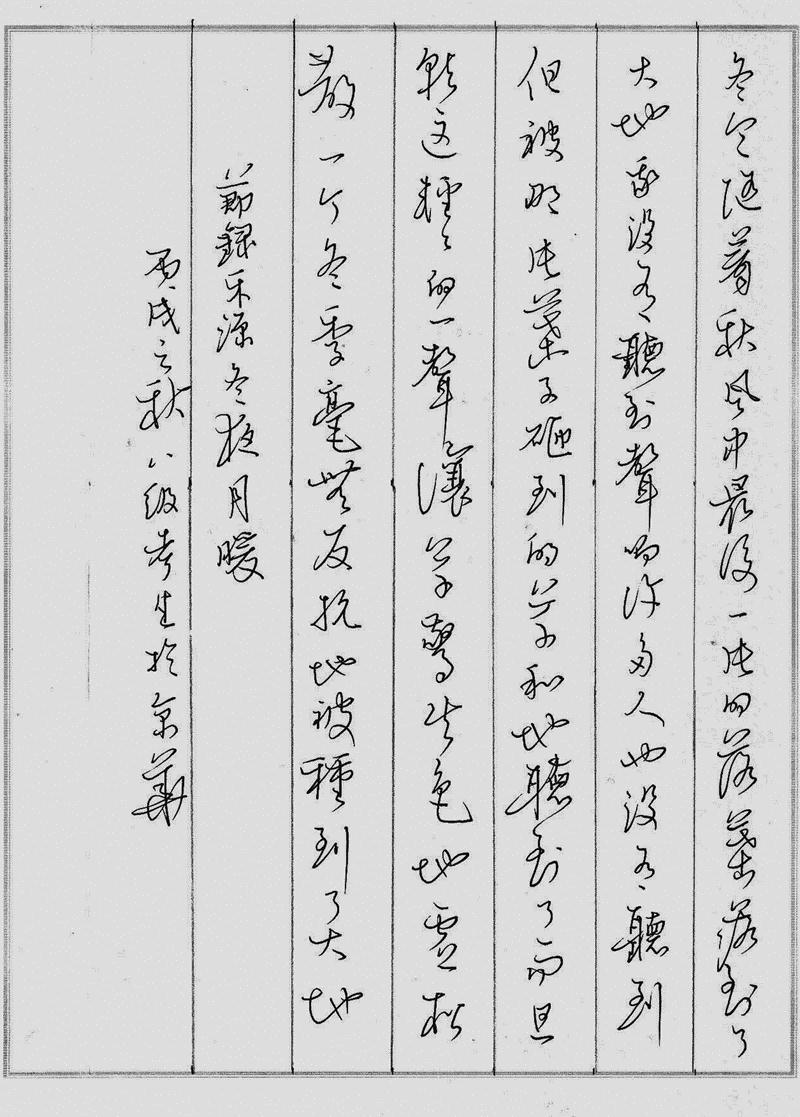 冬天隨着秋風中最後一片的落葉落到了
大地我沒有聽到聲响許多人也沒有聽到
但被那片葉子砸到的草和地聽到了而且
就這輕輕的一聲讓草驚失色地虛松
散一个冬季毫無反抗地被種到了大地
節錄禾源冬夜月暖
丙戌之秋八级考生於京華